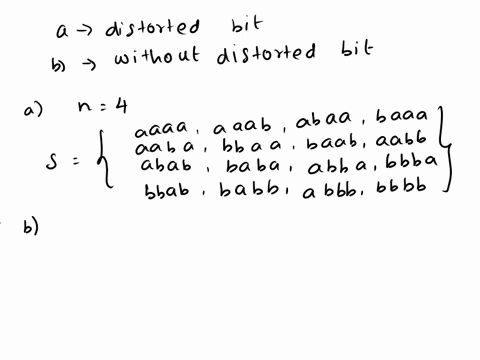 a → distorted bit
b) → without distorted bit
a) n = 4
aaaa, aaab, abaa, baaa
aaba, bbaa, baab, aabb
S = { abab, baba, abba, bbba }
bbab, babb, abbb, bbbb
b)